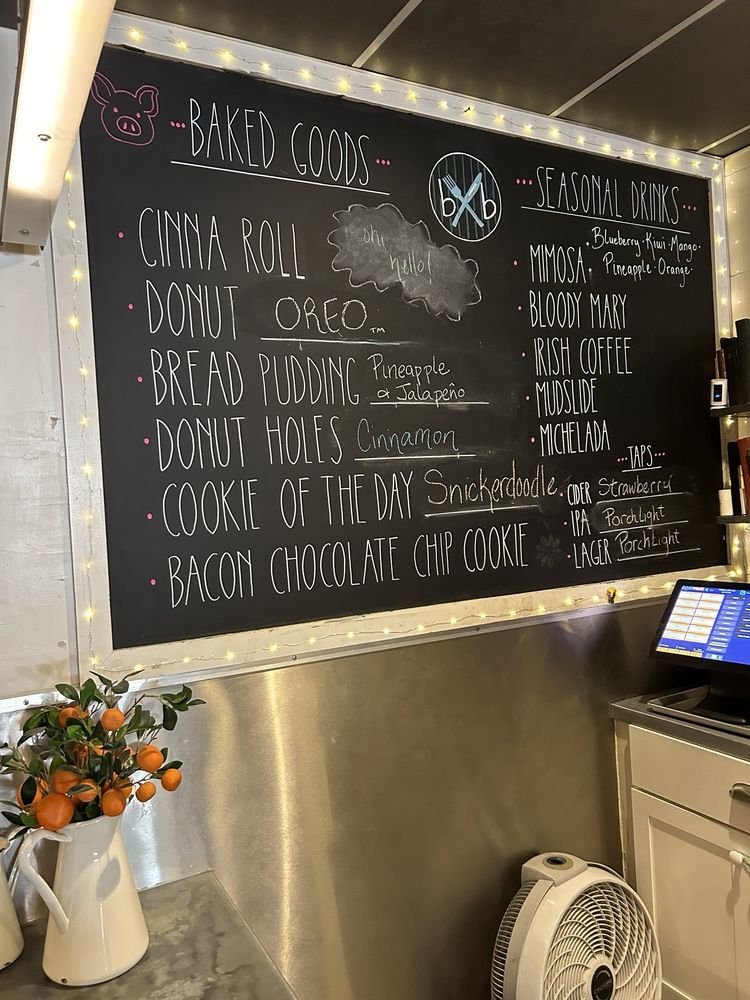 BAKED GOODS
CINNA ROLL
oh, hello!
DONUT OREO™
BREAD PUDDING Pineapple
& Jalapeño
DONUT HOLES Cinnamon
COOKIE OF THE DAY Snickerdoodle
BACON CHOCOLATE CHIP COOKIE
b b
SEASONAL DRINKS
Blueberry · Kiwi · Mango ·
MIMOSA · Pineapple · Orange ·
BLOODY MARY
IRISH COFFEE
MUDSLIDE
MICHELADA
TAPS
CIDER Strawberry
IPA PorchLight
LAGER PorchLight